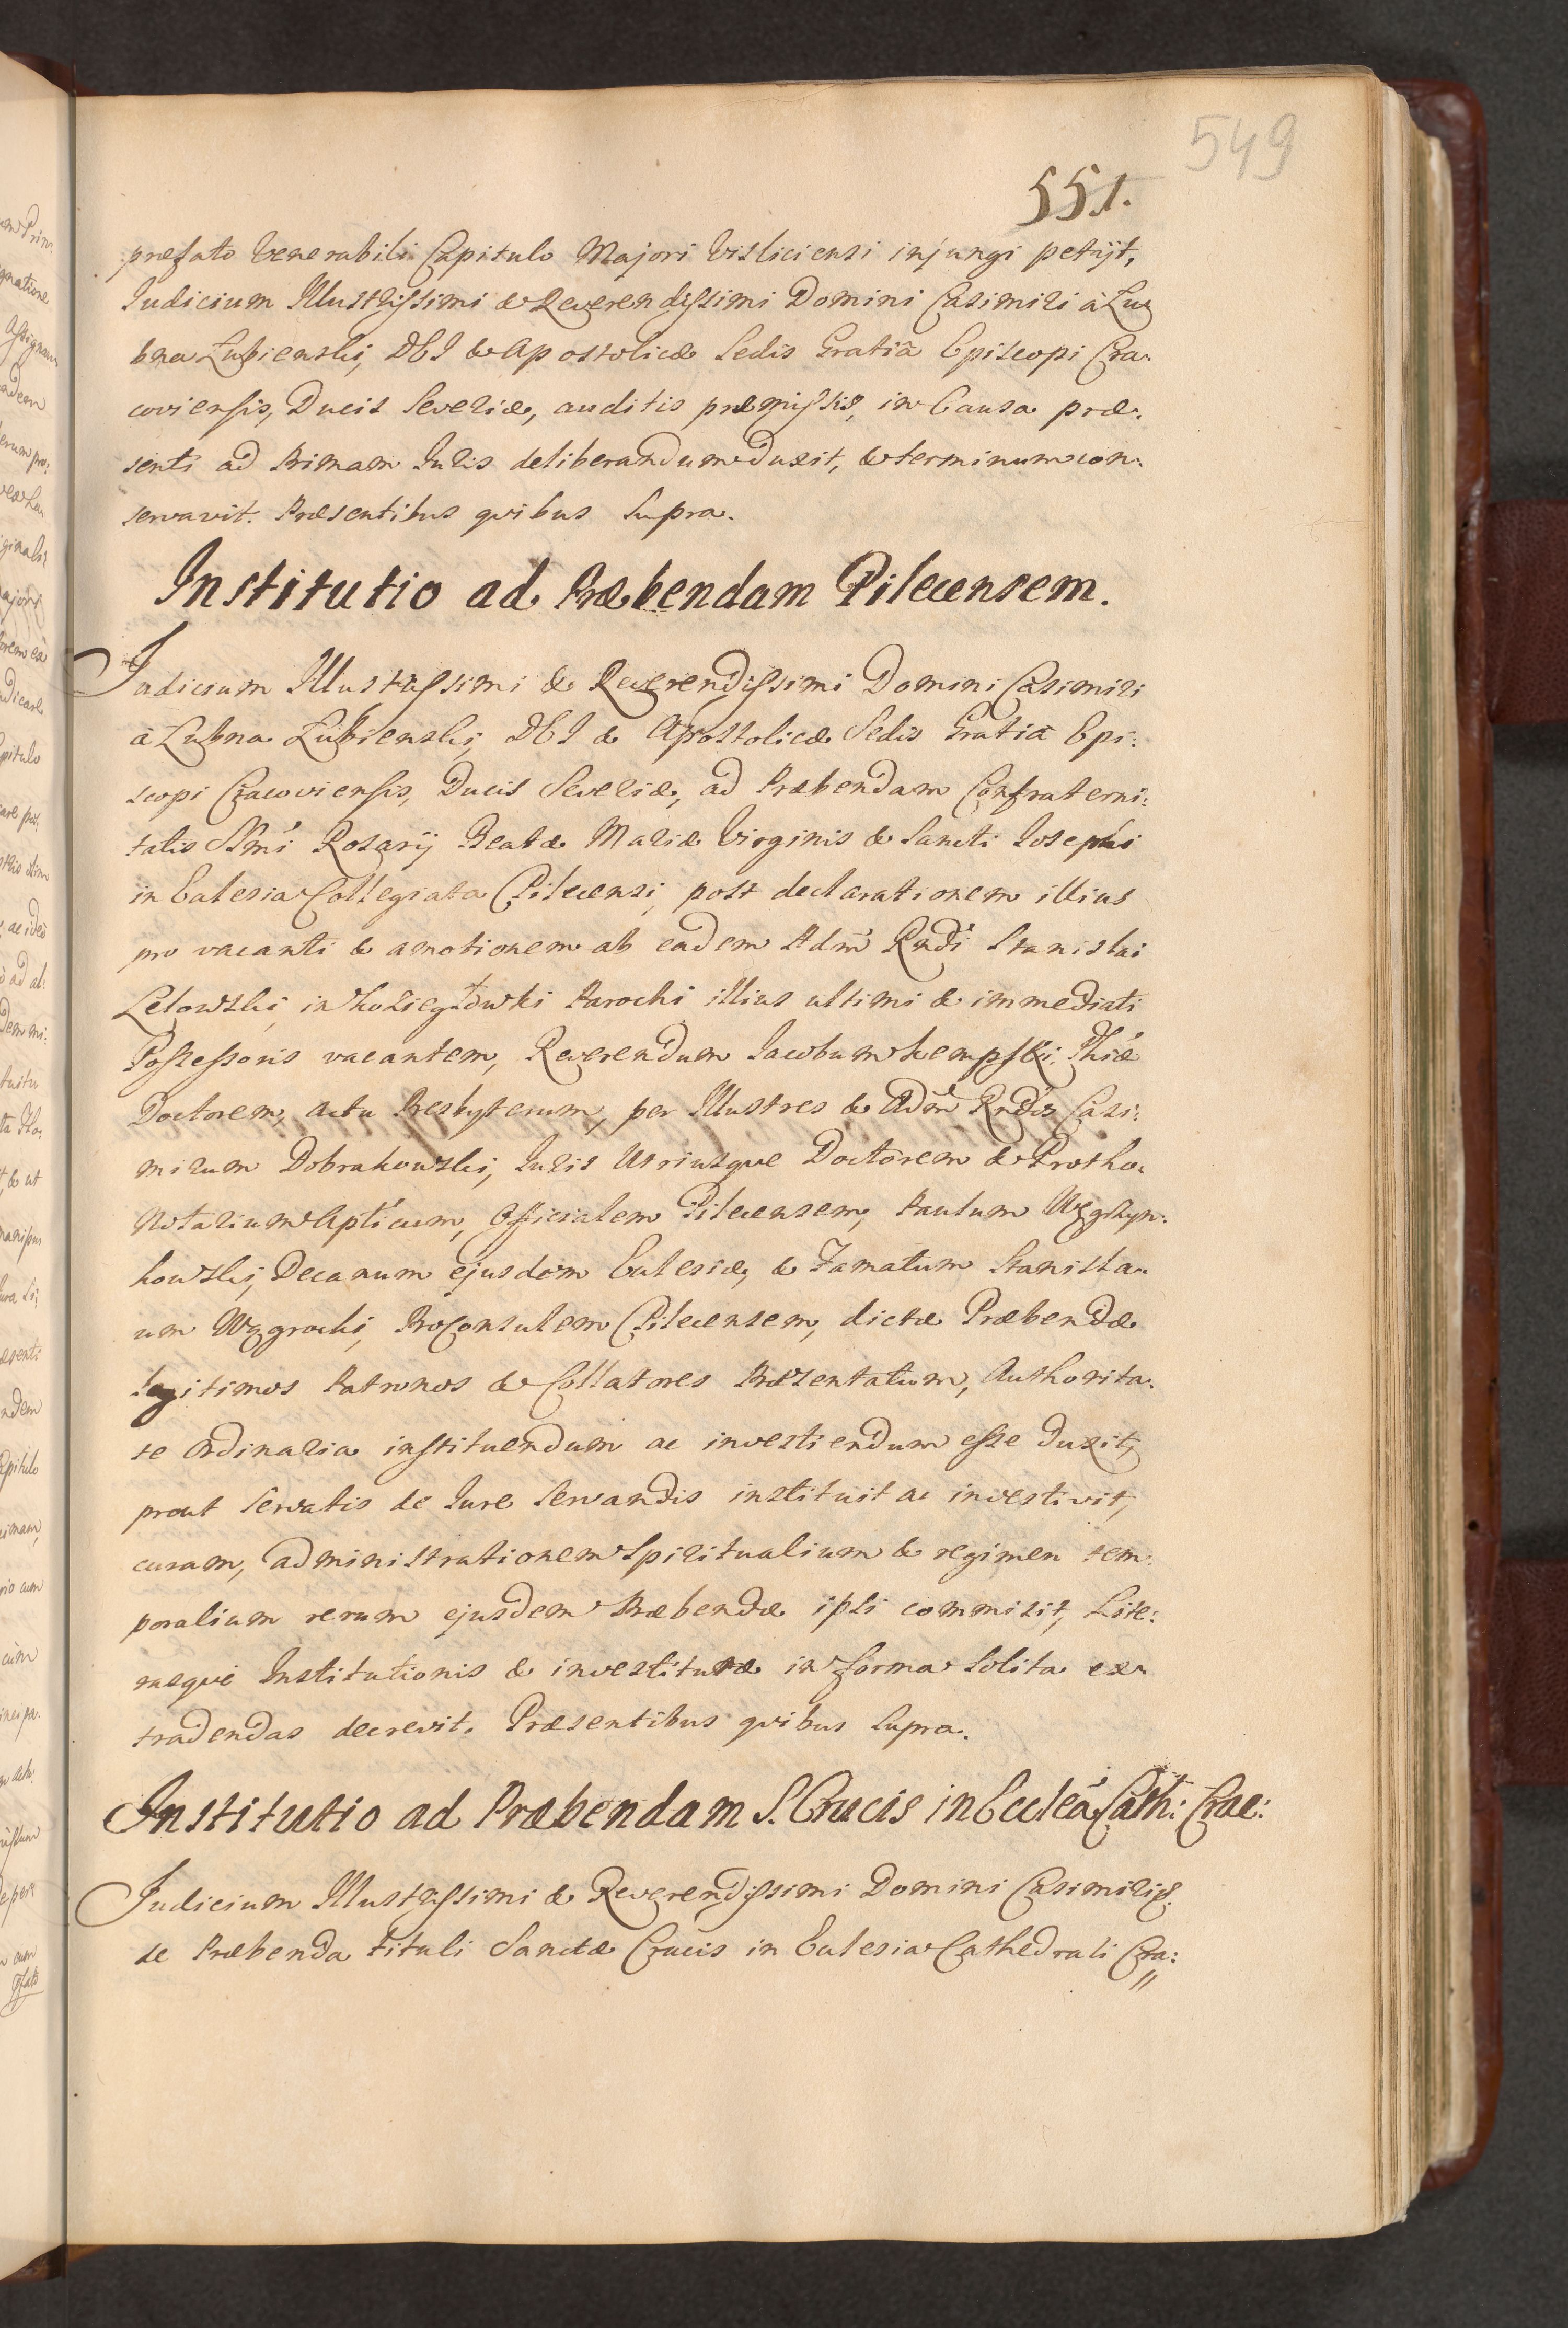 549
551.
præfato Venerabili Capitulo Majori Visliciensi injungi petijt,
Judicium Illustrissimi & Reverendissimi Domini Casimiri à Łu
bna Łubienski, DEI & Apostolicæ Sedis Gratiâ Episcopi Cra:
coviensis, Ducis Severiæ, auditis præmissis, in Causa præ:
senti ad Primam Juris deliberandum duxit, & terminum con:
servavit. Præsentibus quibus supra.
Institutio ad Præbendam Pilecensem.
Judicium Illustrissimi & Reverendissimi Domini Casimiri
à Łubna Łubienski, DEI & Apostolicæ Sedis Gratiâ Epi:
scopi Cracoviensis, Ducis Severiæ, ad Præbendam Confraterni:
tatis SSmi Rosarij Beatæ Mariæ Virginis & Sancti Josephi
in Ecclesia Collegiata Pilecensi, post declarationem illius
pro vacanti & amotionem ab eadem Adm Rndi Stanislai
Letowski, in Koziegłowki Parochi illius ultimi & immediati
Possessoris vacantem, Reverendum Jacobum Kempski, Phiæ
Doctorem, actu Presbyterum, per Illustres & Adm Rndos Casi:
mirum Dobrakowski, Juris Utriusque Doctorem & Protho:
Notarium Aplicum, Officialem Pilecensem, Paulum Węgrzyn:
kowski, Decanum ejusdem Ecclesiæ, & Famatum Stanisla:
um Wągrocki, ProConsulem Pilecensem, dictæ Præbendæ
legitimos Patronos & Collatores Præsentatum, Authorita:
te Ordinaria instituendum ac investiendum esse duxit,
prout servatis de Jure servandis instituit ac investivit,
curam, administrationem Spiritualium & regimen tem:
poralium rerum ejusdem Præbendæ ipsi commisit, Lite:
rasque Institutionis & investituræ in forma solita ex:
tradendas decrevit. Præsentibus quibus supra.
Institutio ad Præbendam S. Crucis in Eccleâ Cath: Crac:
Judicium Illustrissimi & Reverendissimi Domini Casimiri &.
de Præbenda tituli Sanctæ Crucis in Ecclesia Cathedrali Cra: